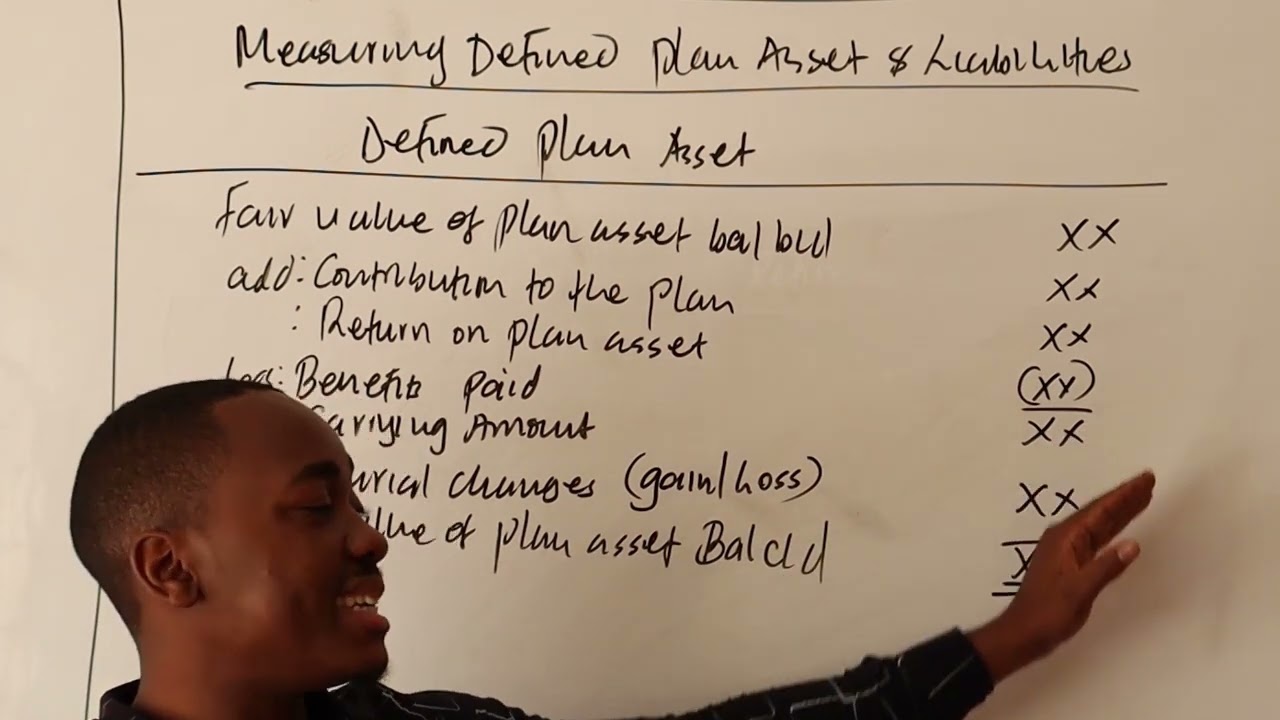 Measuring Defined Plan Asset & Liabilities
Defined Plan Asset
Fair value of plan asset bal bd XX
add: Contribution to the plan XX
: Return on plan asset XX
Benefits paid (XX)
Carrying Amount XX
changes (gain/Loss) XX
of plan asset Bal cd